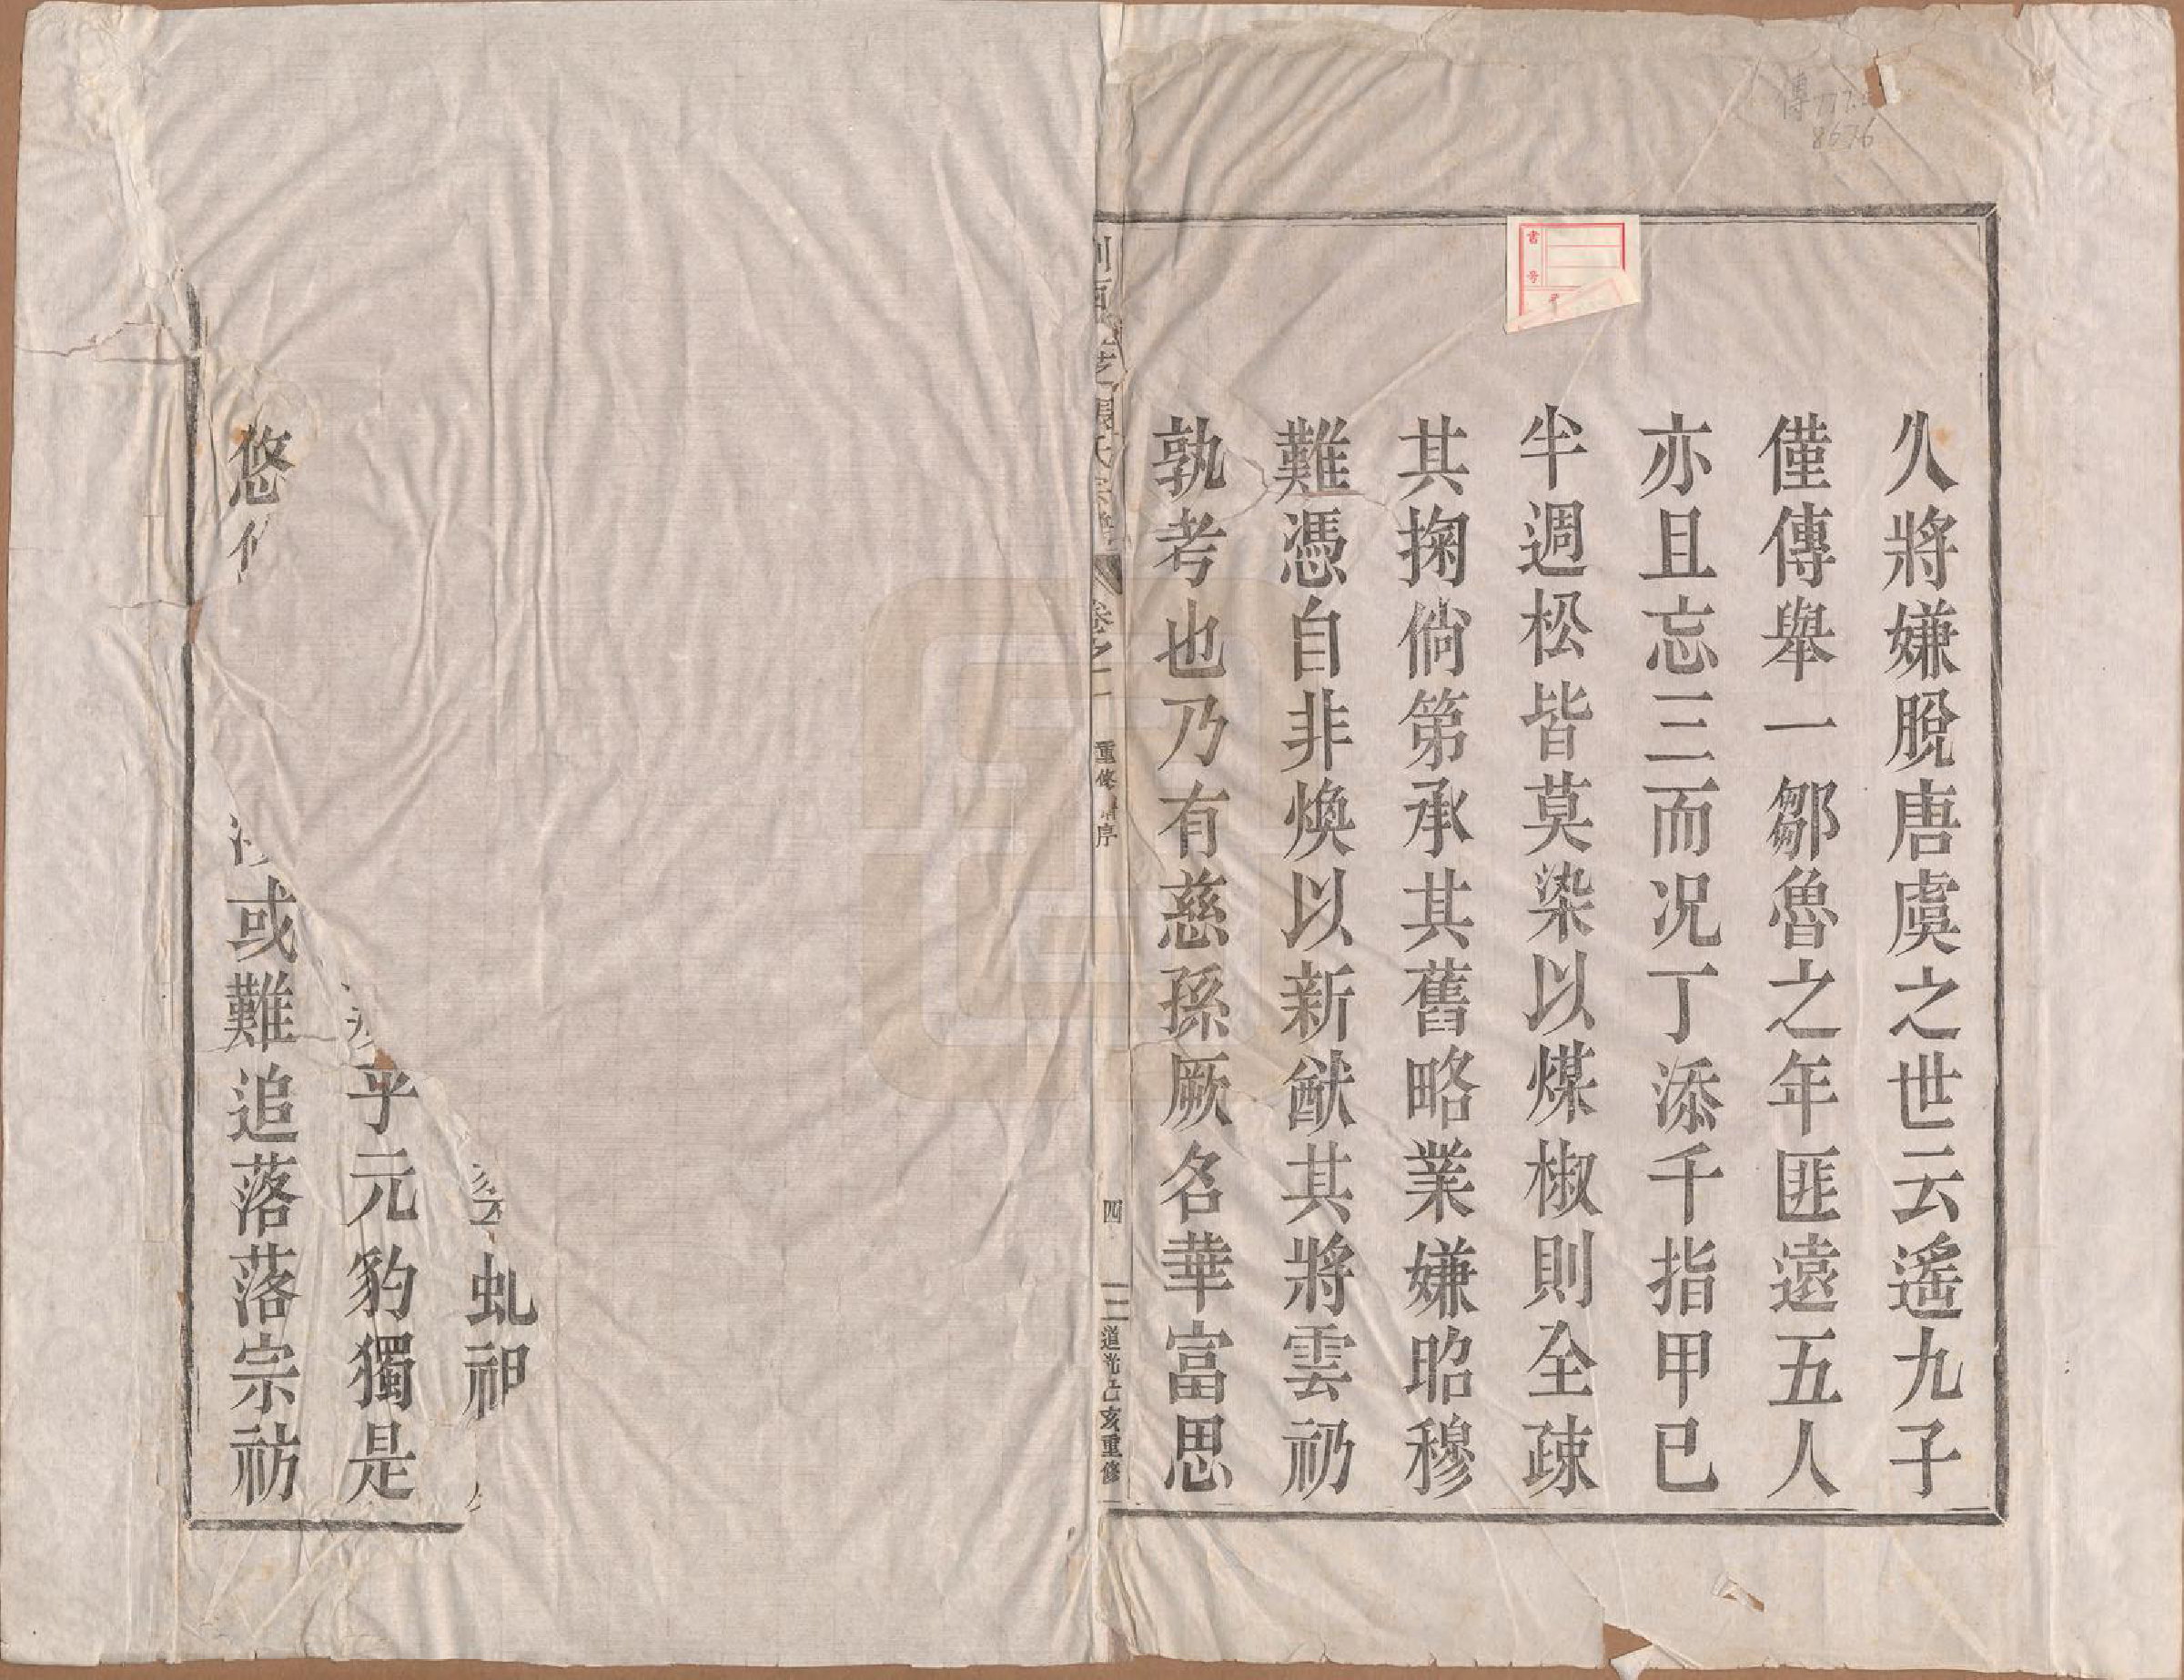 傳 777.
8676
書号
久將嫌脫唐虞之世云遙九子
僅傳舉一鄒魯之年匪遠五人
亦且忘三而况丁添千指甲已
半週松皆莫染以煤椒則全疎
其掬倘第承其舊略業嫌昭穆
難憑自非煥以新猷其將雲礽
孰考也乃有慈孫厥名華富思
張氏宗譜 卷之一 重修譜序 四 道光己亥重修
虬祖
乎元豹獨是
悠
或難追落落宗祊